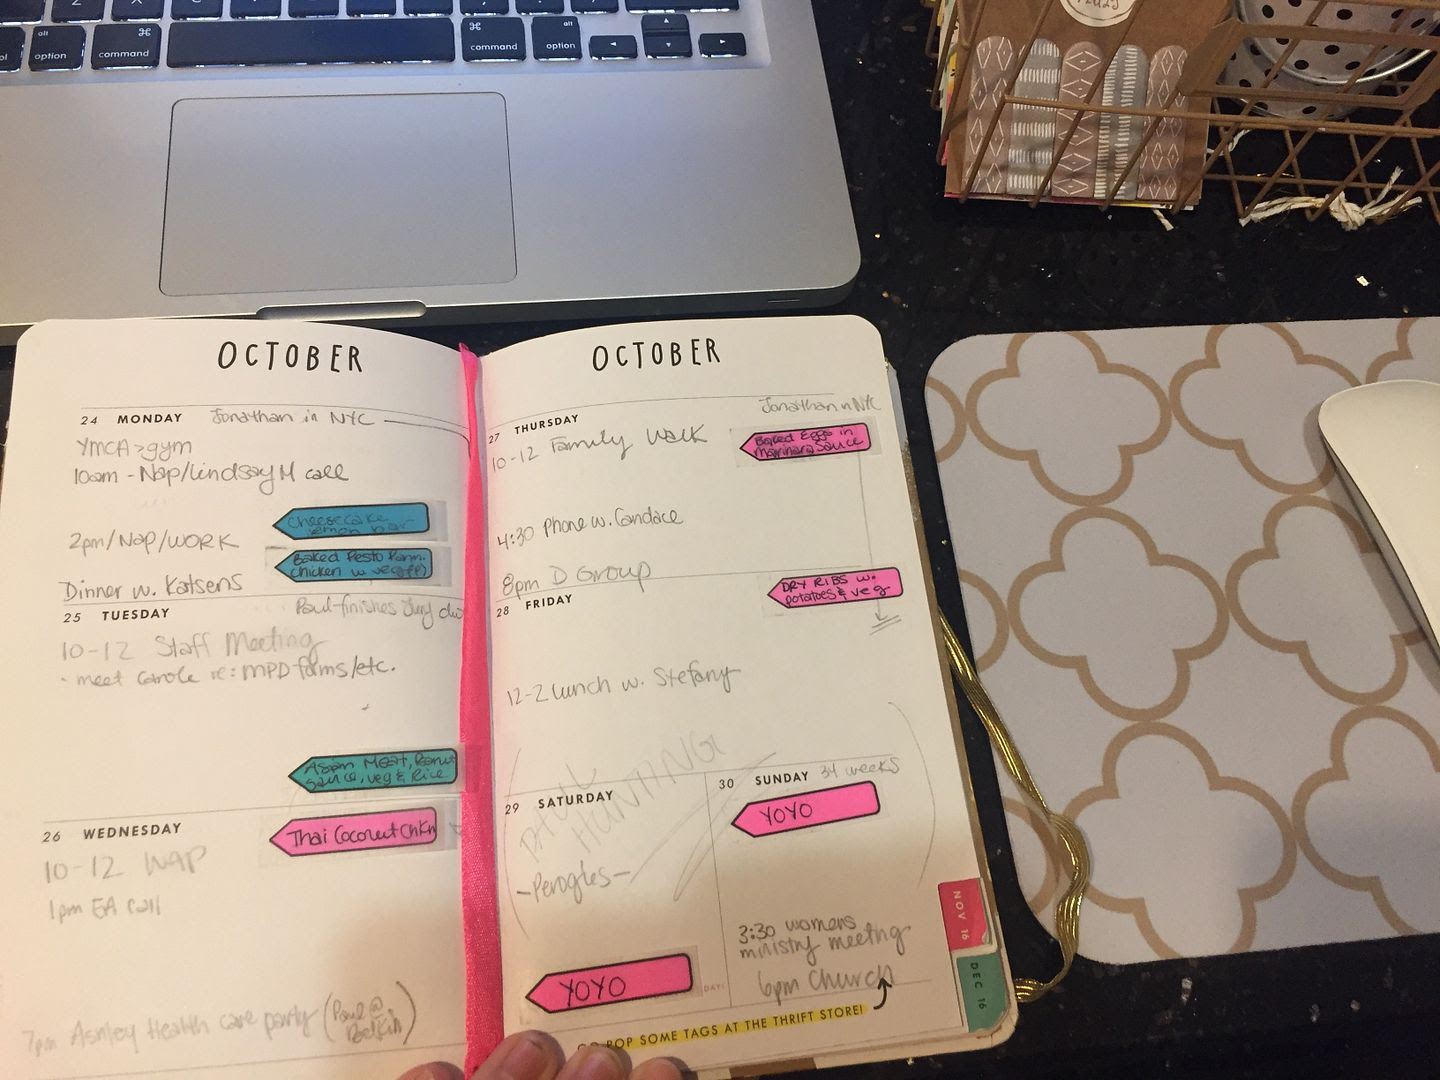 alt
option
⌘
command
⌘
command
alt
option
OCTOBER
24 MONDAY Jonathan in NYC
YMCA > gym
10am - Nap/Lindsay M call
cheesecake
lemon bar
2pm/Nap/WORK
Baked Pesto Parm.
chicken w veg
Dinner w. Katsens
25 TUESDAY Paul-finishes
10-12 Staff Meeting
· meet Carole re: MPD forms/etc.
Asian Meat, Peanut
sauce, veg & Rice
26 WEDNESDAY
Thai Coconut Chkn
10-12 NAP
1pm EA Call
7pm Ashley Health care party (Paul @
Belkin)
OCTOBER
27 THURSDAY Jonathan in NYC
10-12 Family Walk
Baked Eggs in
Marinara Sauce
4:30 Phone w. Candace
8pm D Group
28 FRIDAY
DRY RIBS w.
potatoes & veg
12-2 Lunch w. Stefany
HUNTING
29 SATURDAY
-Perogies-
YOYO
30 SUNDAY 34 weeks
YOYO
3:30 womens
ministry meeting
6pm Church
POP SOME TAGS AT THE THRIFT STORE!
NOV 16
DEC 16